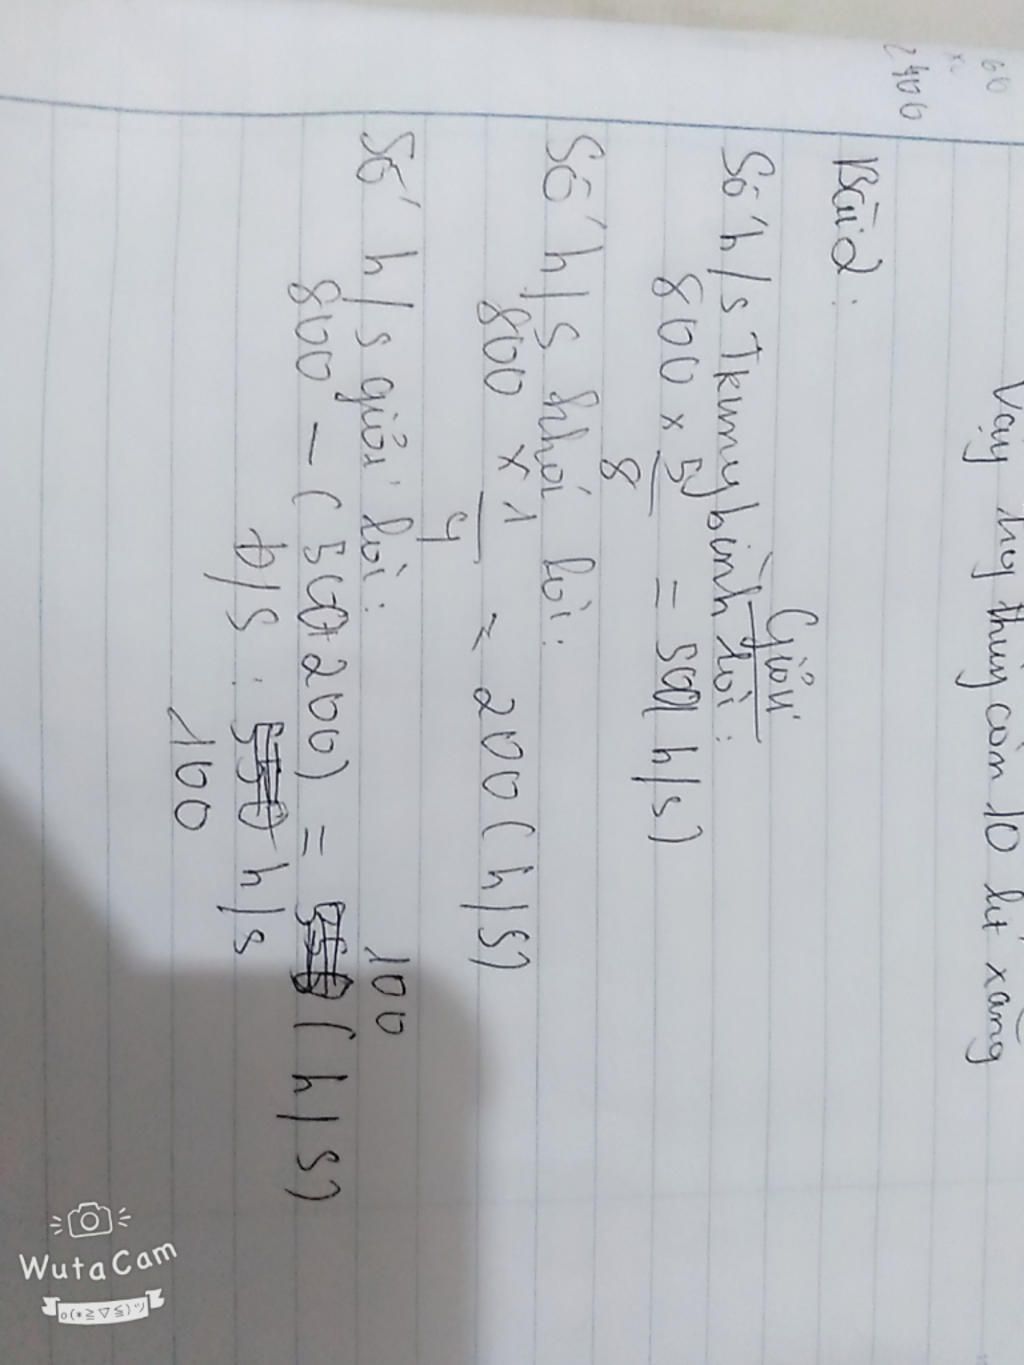 60
x
2400
Vậy thùng còn 10 lít xăng
Bài 2:
Giải
Số h/s Trung bình lài:
800 x 5/8 = 500 h/s)
Số h/s khá lài:
800 x 1/4 = 200 (h/s)
Số h/s giỏi lài:
100
800 - (500+200) = (h/s)
Đ/S: h/s
100
WutaCam
o(*≧▽≦)ツ